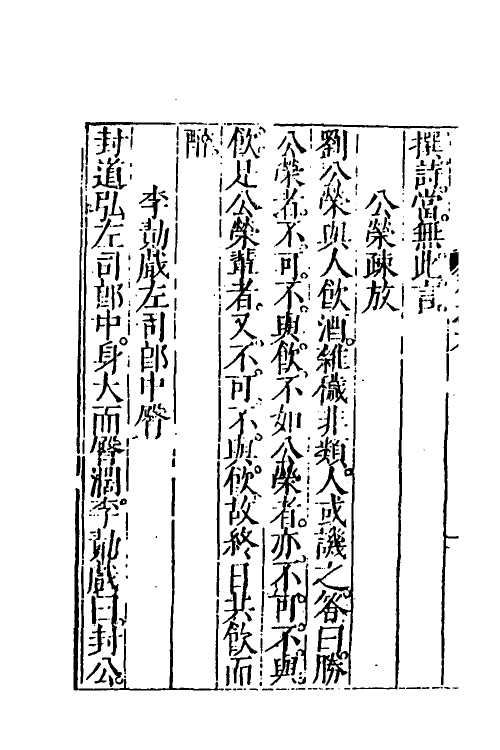 撰詩當無此言
公榮疎放
劉公榮與人飲酒雜穢非類人或譏之答曰勝
公榮者不可不與飲不如公榮者亦不可不與
飲是公榮輩者又不可不與飲故終日共飲而
醉
李勣戲左司郎中臀
封道弘左司郎中身大而臀濶李勣戲曰封公